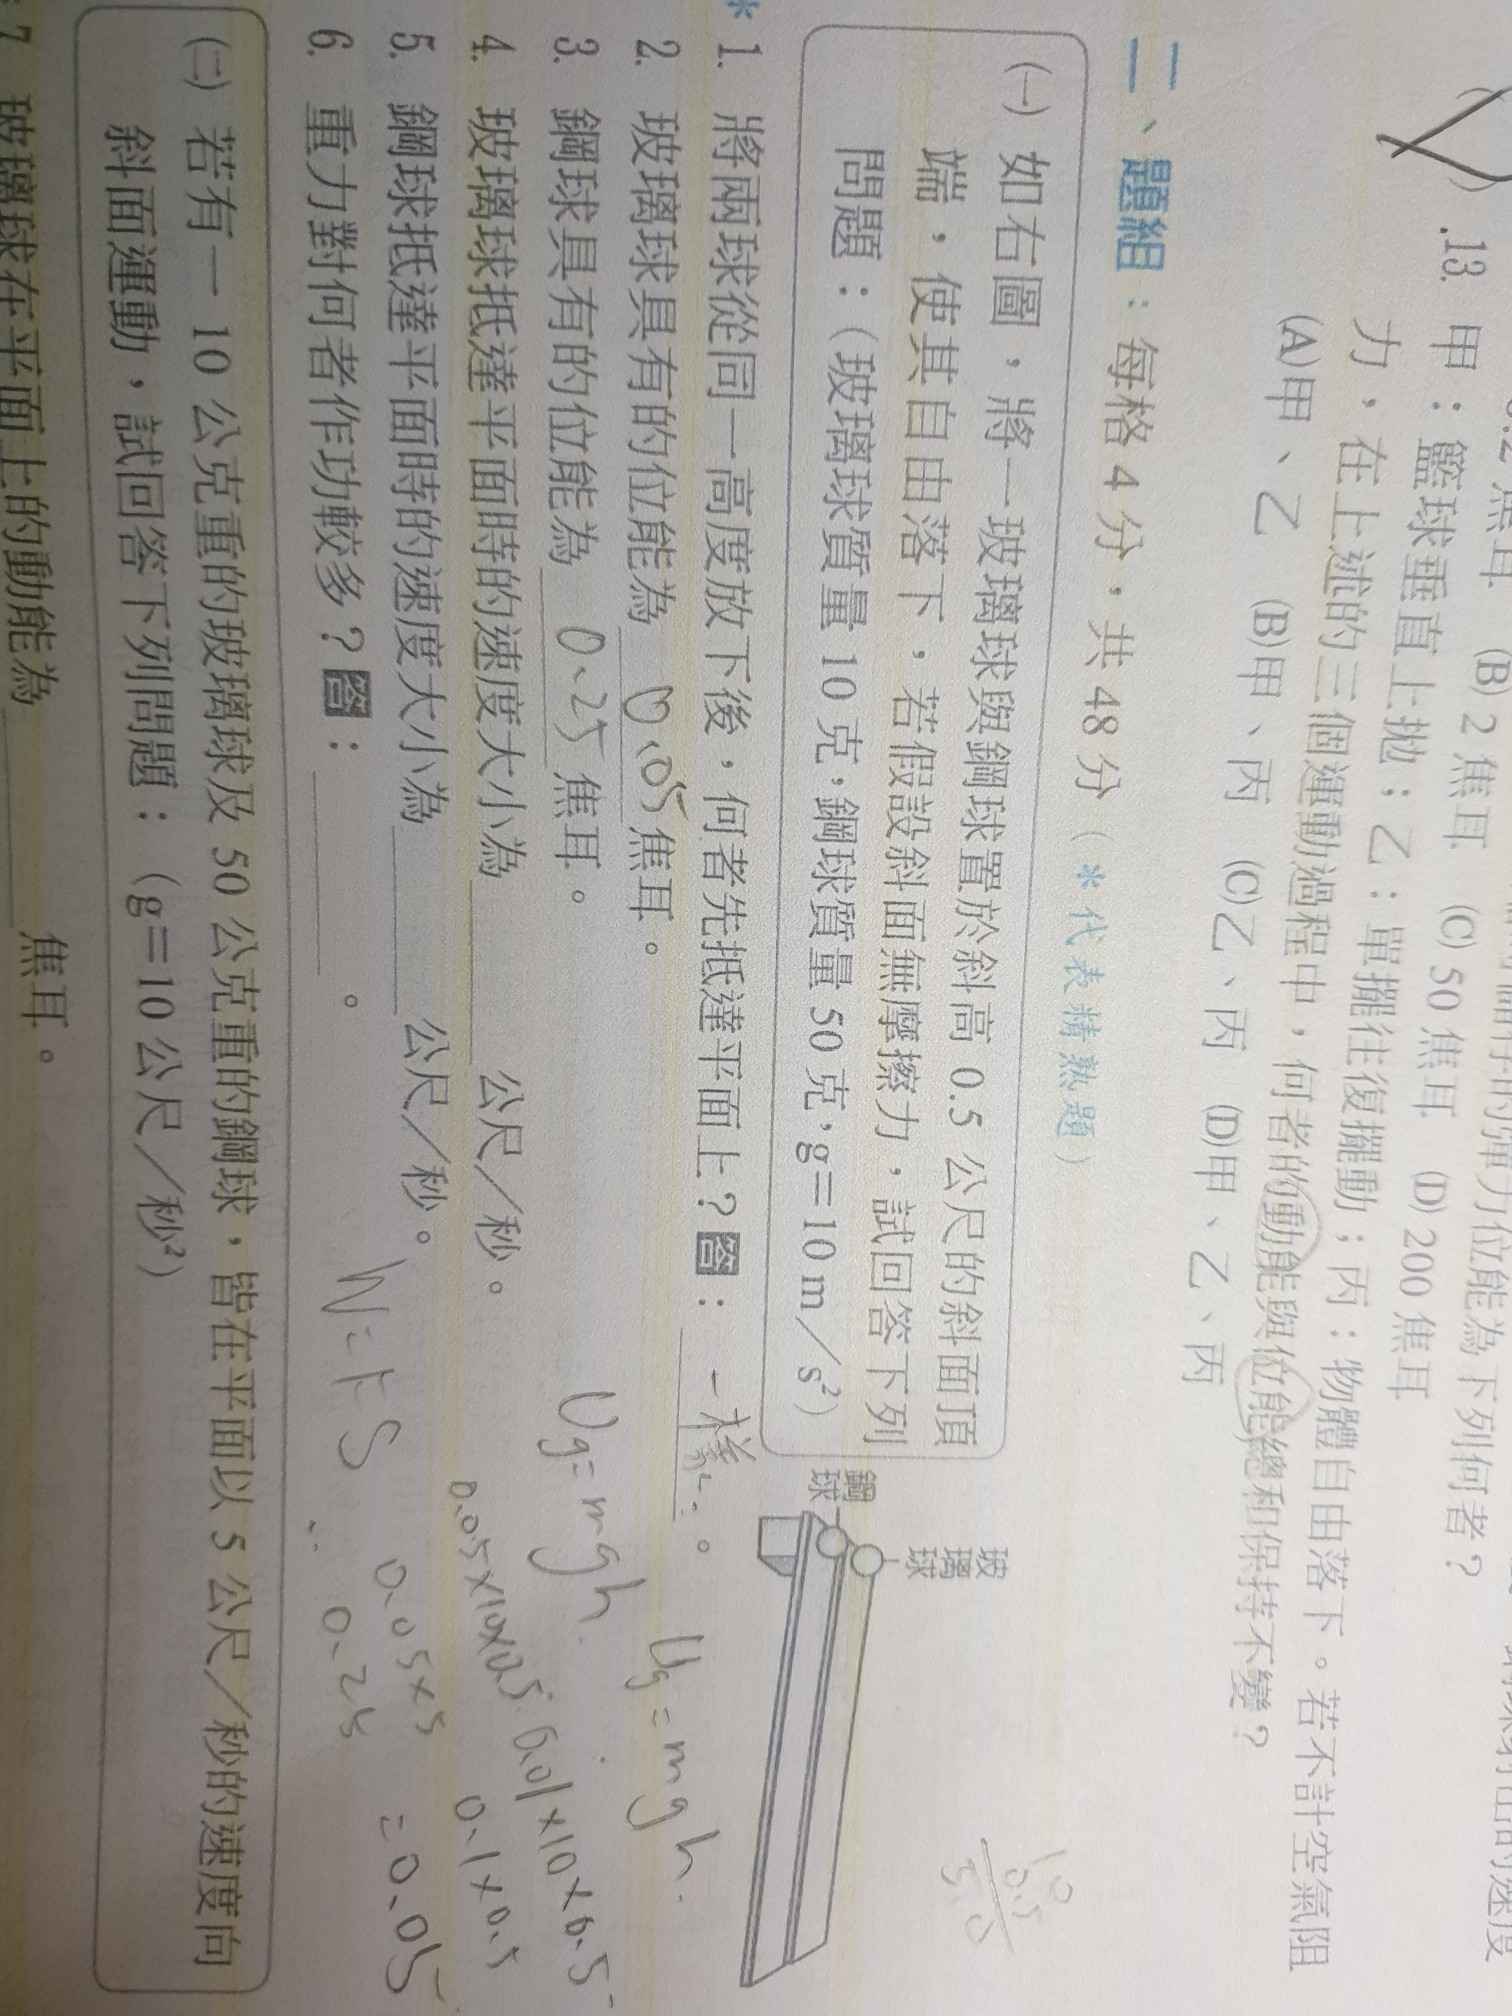 0.2 焦耳 (B) 2 焦耳 (C) 50 焦耳 (D) 200 焦耳
13. 甲：籃球垂直上拋；乙：單擺往復擺動；丙：物體自由落下。若不計空氣阻
力，在上述的三個運動過程中，何者的動能與位能總和保持不變？
(A)甲、乙 (B)甲、丙 (C)乙、丙 (D)甲、乙、丙
二、題組：每格 4 分，共 48 分（＊代表精熟題）
(一) 如右圖，將一玻璃球與鋼球置於斜高 0.5 公尺的斜面頂
端，使其自由落下，若假設斜面無摩擦力，試回答下列
問題：（玻璃球質量 10 克，鋼球質量 50 克，g＝10 m／s²）
鋼球
玻璃球
10
0.5
5.0
＊1. 將兩球從同一高度放下後，何者先抵達平面上？答：一樣。
2. 玻璃球具有的位能為 0.05 焦耳。
Ug=mgh.
3. 鋼球具有的位能為 0.25 焦耳。
Ug=mgh.
0.01×10×0.5
4. 玻璃球抵達平面時的速度大小為 公尺／秒。
0.05×10×0.5.
0.1×0.5
5. 鋼球抵達平面時的速度大小為 公尺／秒。
0.05×5
=0.05
6. 重力對何者作功較多？答： 。
W=FS
0.25
(二) 若有一 10 公克重的玻璃球及 50 公克重的鋼球，皆在平面以 5 公尺／秒的速度向
斜面運動，試回答下列問題：（g＝10 公尺／秒²）
7. 玻璃球在平面上的動能為 焦耳。